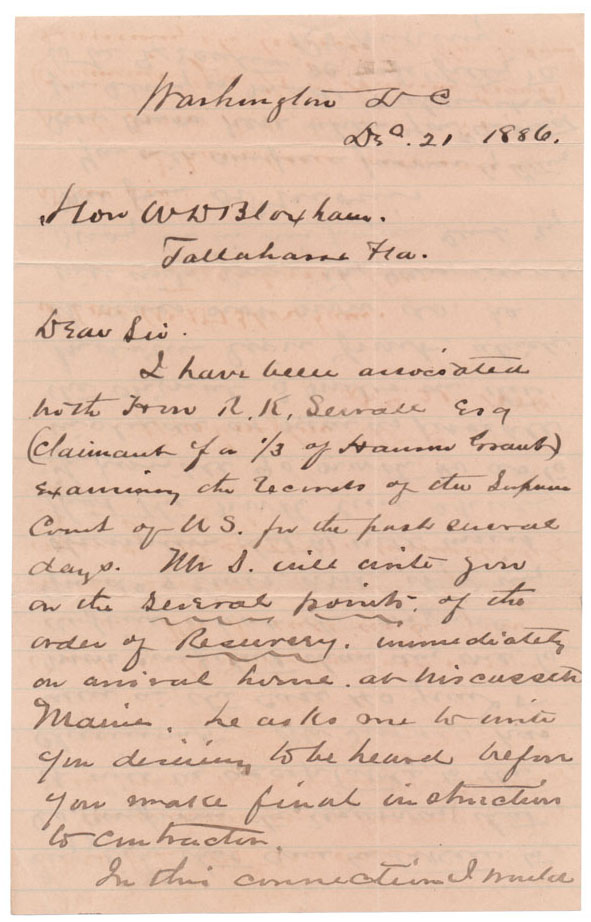 Washington D C
Dec. 21 1886.
Hon W D Bloxham.
Tallahasse Fla.
Dear Sir.
I have been associated
with Hon R. K. Sewall Esq
(Claimant of a 1/3 of Hanson Grant)
examining the records of the Supreme
Court of U S. for the past several
days. Mr S. will write you
on the several points, of the
order of Resurvey. immediately
on arrival home. at Wiscassett
Maine. he asks me to write
you desiring to be heard before
you make final instruction
to contractor.
In this connection I would